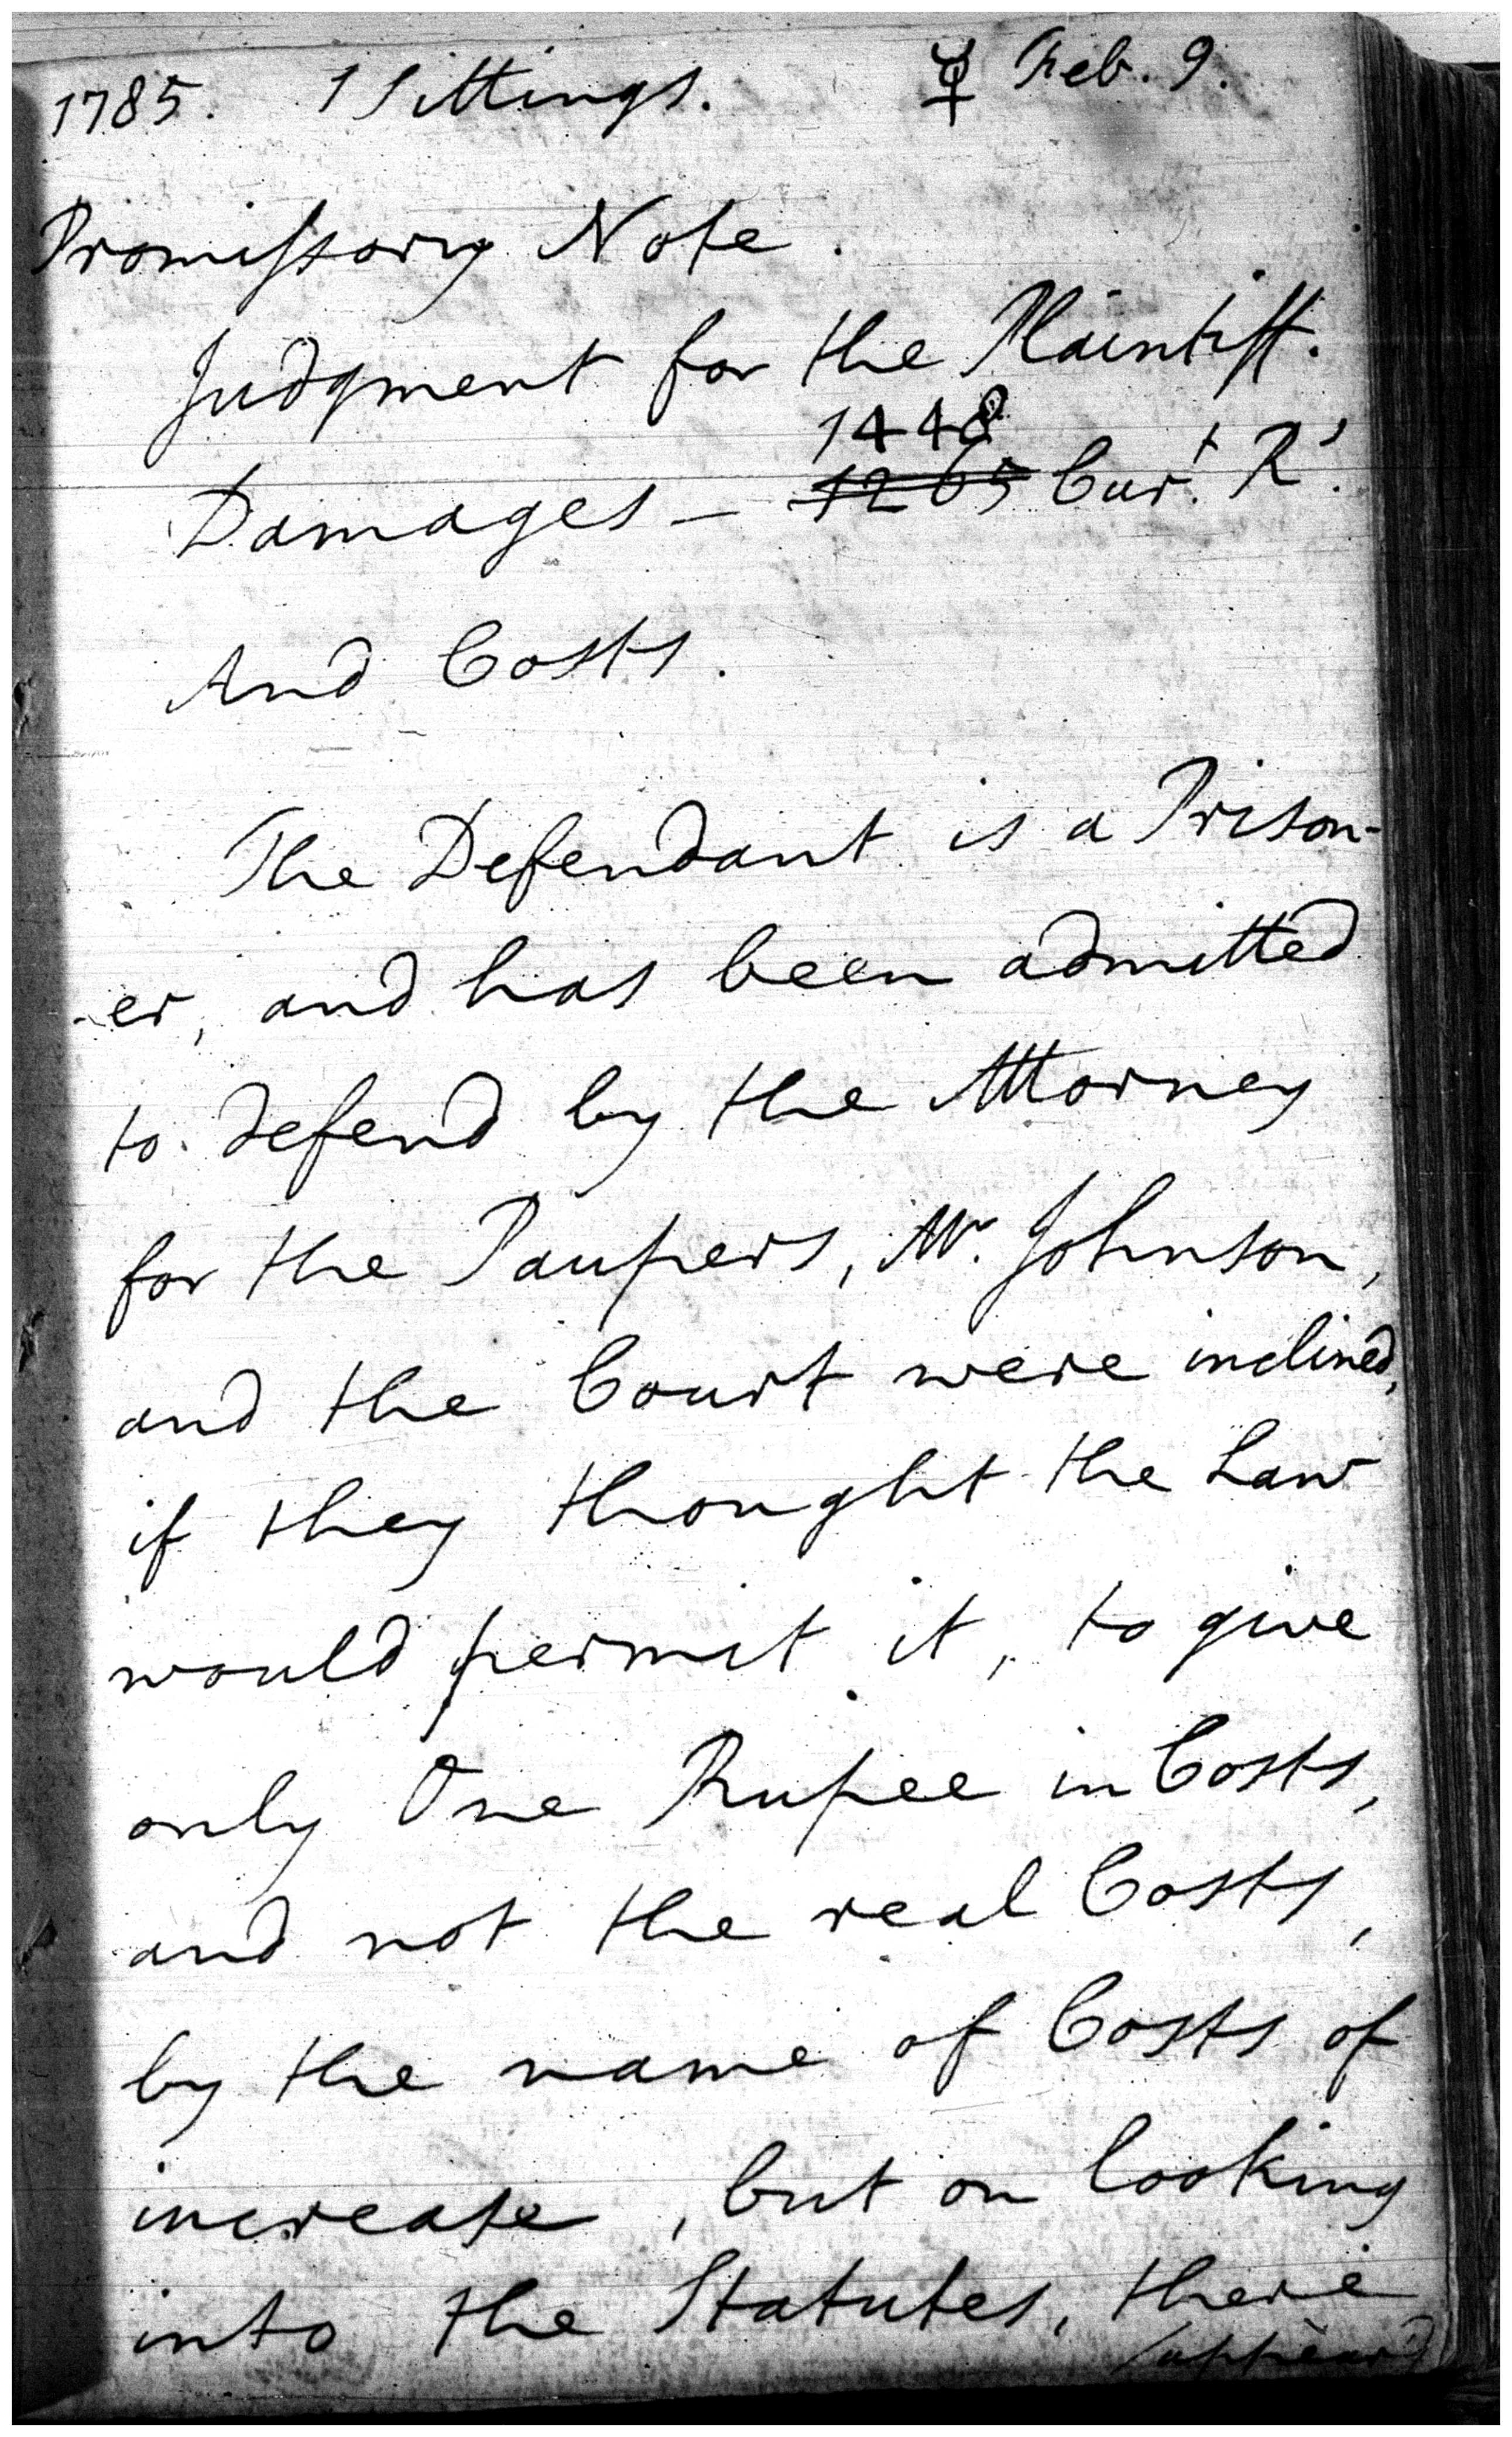 1785. 1 Sittings. ☿ Feb. 9.
Promissory Note.
Judgment for the Plaintiff.
1448
Damages — 1265 Curt. Rs.
And Costs.
The Defendant is a Prison-
-er, and has been admitted
to defend by the Attorney
for the Paupers, Mr. Johnson,
and the Court were inclined,
if they thought the Law
would permit it, to give
only One Rupee in Costs,
and not the real Costs,
by the name of Costs of
increase, but on looking
into the Statutes, there
/appear'd